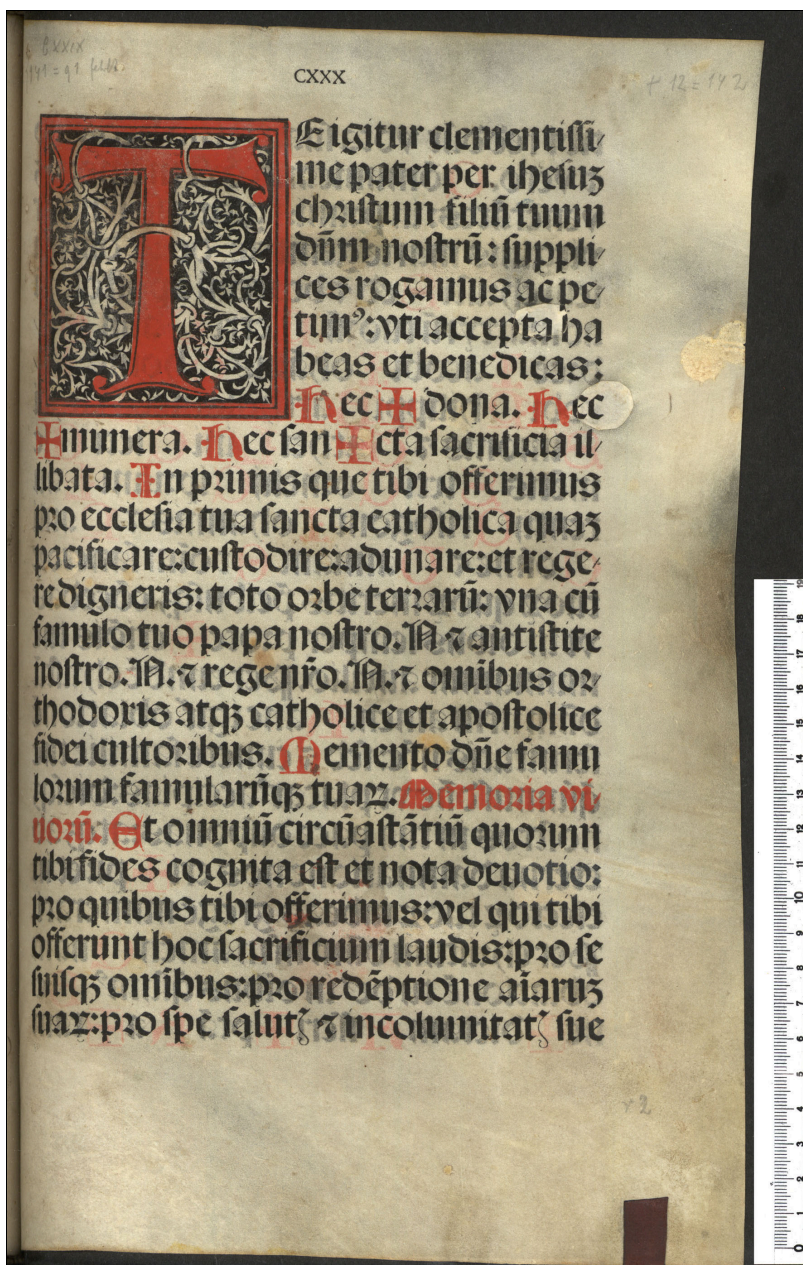 CXXIX
CXXX
+ 12 = 142
TE igitur clementissi/
me pater per ihesuꝫ
christum filiū tuum
dn̄m nostrū: suppli/
ces rogamus ac pe/
timꝰ: vti accepta ha
beas et benedicas:
Hec ✠ dona. Hec
✠ munera. Hec san ✠ cta sacrificia il/
libata. In primis que tibi offerimus
pro ecclesia tua sancta catholica quaꝫ
pacificare: custodire: adunare: et rege/
re digneris: toto orbe terrarū: vna cū
famulo tuo papa nostro. N ⁊ antistite
nostro. N. ⁊ rege nr̄o. N. ⁊ omībus or/
thodoxis atqꝫ catholice et apostolice
fidei cultoribus. Memento dn̄e famu
lorum famularūqꝫ tuaꝝ. Memoria vi/
uorū. Et omniū circūastātiū quorum
tibi fides cognita est et nota deuotio:
pro quibus tibi offerimus: vel qui tibi
offerunt hoc sacrificium laudis: pro se
suisqꝫ omībus: pro redēptione aīaruꝫ
suaꝝ: pro spe salutꝭ ⁊ incolumitatꝭ sue
r2
0 1 2 3 4 5 6 7 8 9 10 11 12 13 14 15 16 17 18 19